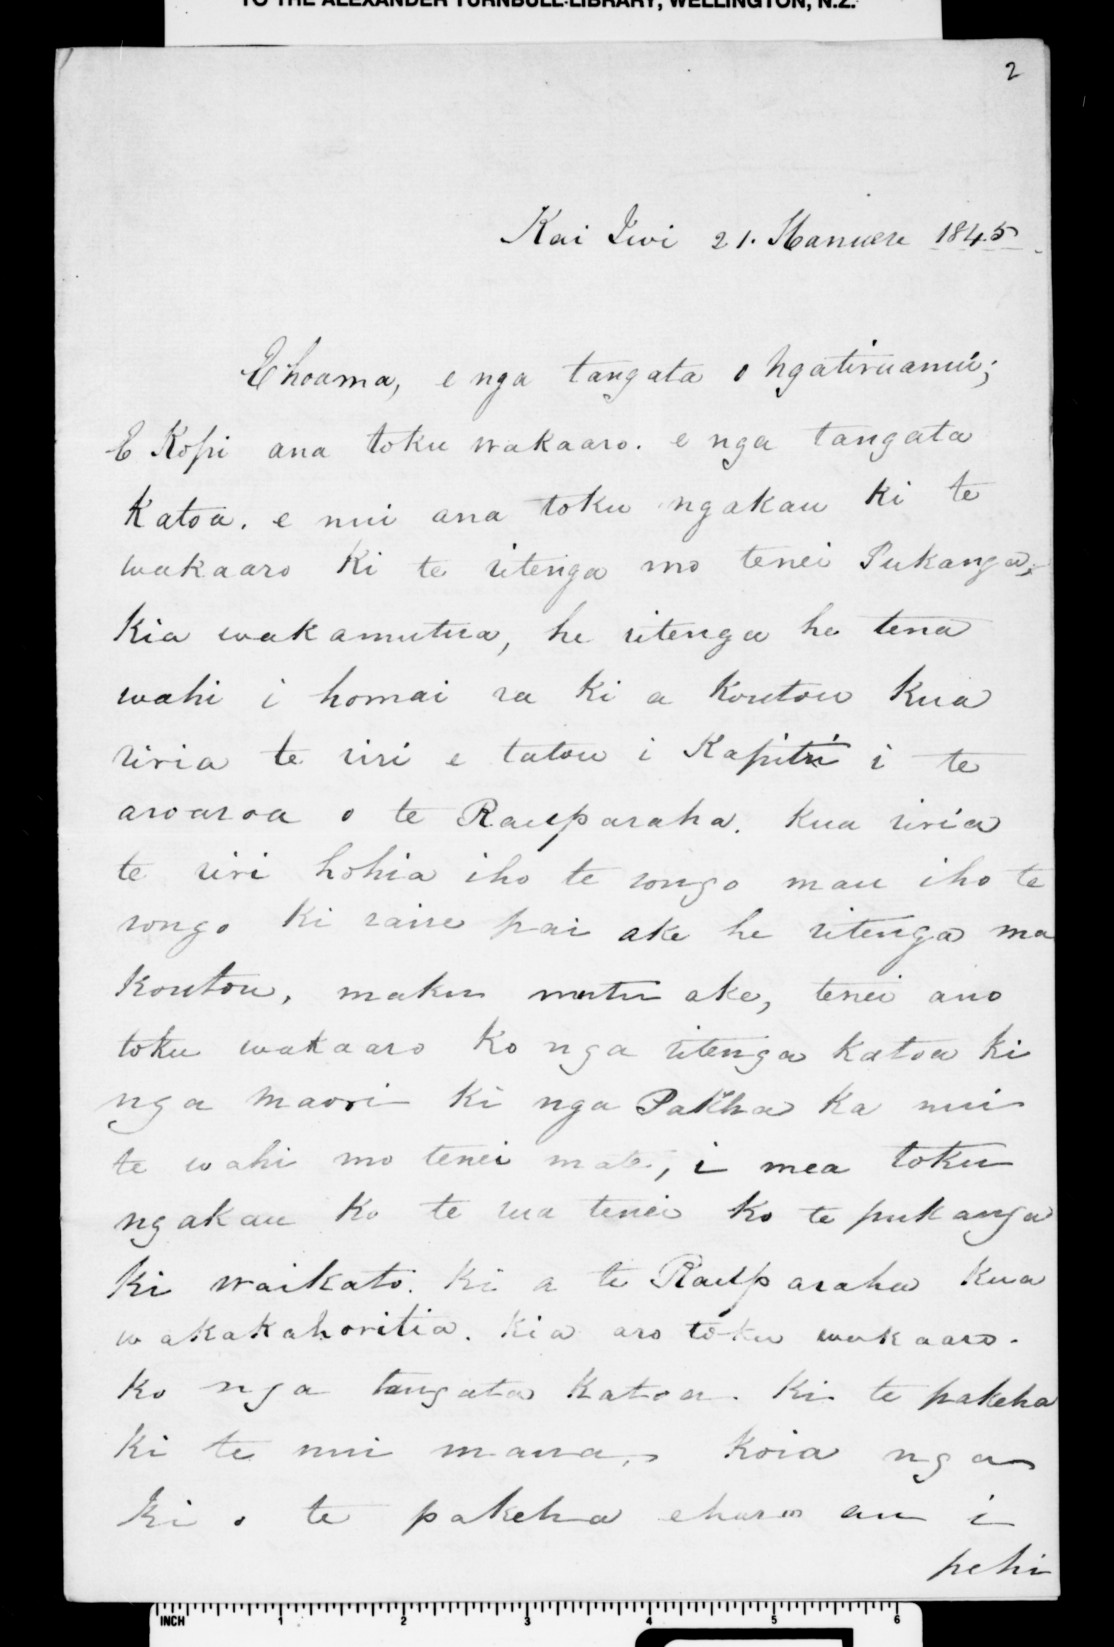 TO THE ALEXANDER TURNBULL LIBRARY, WELLINGTON, N.Z.
2
Kai Iwi 21. Hanuere 1845
E hoama, e nga tangata o Ngatiruanui;
E Kopi ana toku wakaaro. e nga tangata
Katoa. e nui ana toku ngakau ki te
wakaaro Ki te ritenga mo tenei Pukanga,
Kia wakamutua, he ritenga he tena
wahi i homai ra ki a Koutou Kua
riria te riri e tatou i Kapiti i te
aroaroa o te Rauparaha. Kua riria
te riri hohia iho te rongo mau iho te
rongo Ki raire pai ake he ritenga ma
Koutou, maku mutu ake, tenei ano
toku wakaaro Ko nga ritenga Katoa ki
nga maori ki nga Pakeha Ka nui
te wahi mo tenei mate, i mea toku
ngakau Ko te rua tenei Ko te pukanga
Ki Waikato. Ki a te Rauparaha Kua
wakakahoritia. Kia aro toku wakaaro.
Ko nga tangata Katoa. Ki te pakeha
Ki te nui mana, Koia nga
Ki o te pakeha ehara au i
pehi
INCH 1 2 3 4 5 6